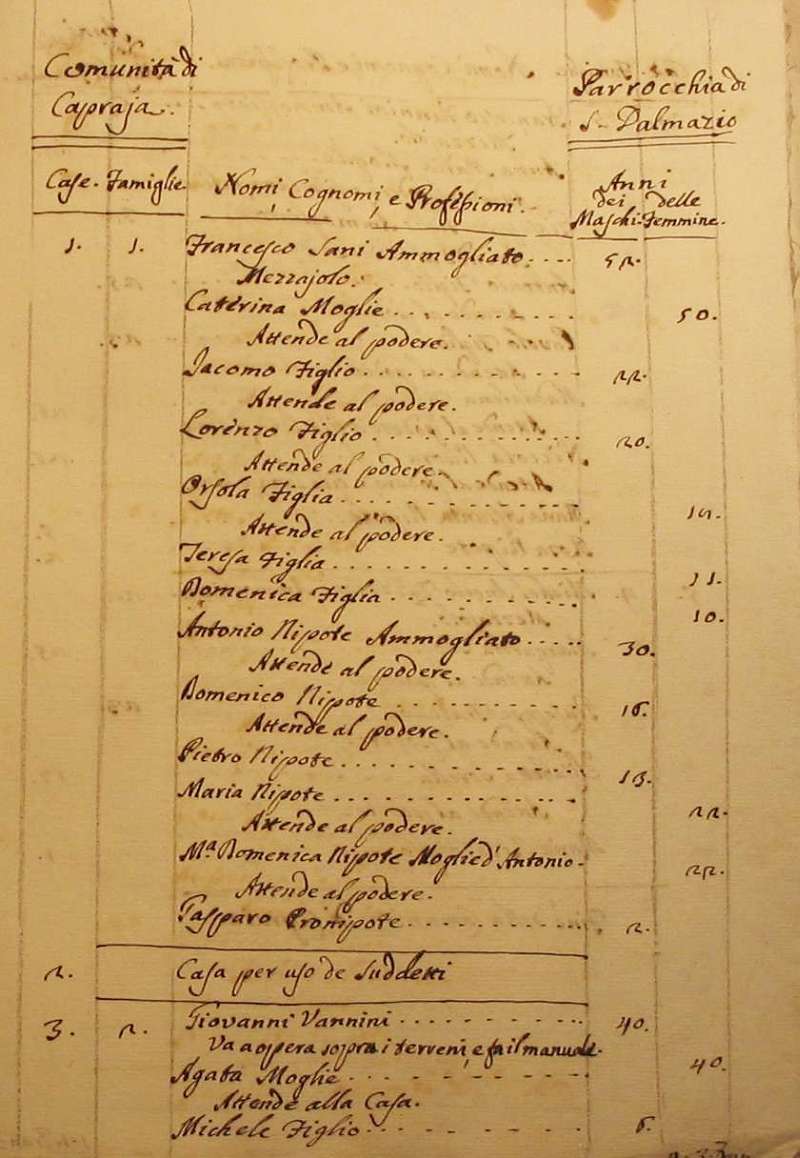 Comunità di Parrocchia di
Capraja. S. Dalmazio
Case. Famiglie. Nomi, Cognomi, e Professioni. Anni
dei delle
Maschi. Femmine.
1. 1. Francesco Sani Ammogliato. . . .
Mezzajolo.
Caterina Moglie . . . . . . . . . . 50.
Attende al podere.
Jacomo Figlio . . . . . . . . . . . 22.
Attende al podere.
Lorenzo Figlio . . . . . . . . . . . 20.
Attende al podere.
Orsola Figlia . . . . . . . . . . . .
Attende al podere.
Teresa Figlia . . . . . . . . . . . . 11.
Domenica Figlia . . . . . . . . . . 10.
Antonio Nipote Ammogliato . . . . 30.
Attende al podere.
Domenico Nipote . . . . . . . . . . 16.
Attende al podere.
Pietro Nipote . . . . . . . . . . . . 13.
Maria Nipote . . . . . . . . . . . . 22.
Attende al podere.
M.a Domenica Nipote Moglie d'Antonio.
Attende al podere.
Gasparo Pronipote . . . . . . . . . 2.
2. Casa per uso de Suddetti
3. 2. Giovanni Vannini . . . . . . . . . 40.
Va a opera sopra i terreni, e fa il manuale.
Agata Moglie . . . . . . . . . . . . 40.
Attende alla Casa.
Michele Figlio . . . . . . . . . . . 6.